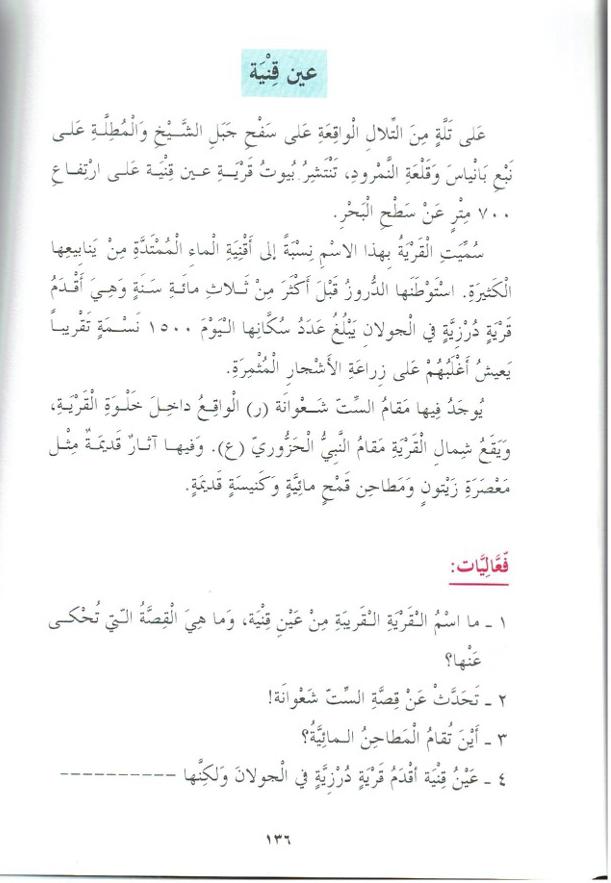 عين قِنْيَة
عَلى تَلَّةٍ مِنَ التِّلالِ الْواقِعَةِ عَلى سَفْحِ جَبَلِ الشَّيْخِ وَالْمُطِلَّةِ عَلـى
نَبْعِ بَانْياسَ وَقَلْعَةِ النَّمْرودِ، تَنْتَشِرُ بُيوتُ قَرْيَـةِ عـين قِنْيَـة عَلـى ارْتِفـاعِ
٧٠٠ مِتْرٍ عَنْ سَطْحِ الْبَحْرِ.
سُمِّيَتِ الْقَرْيَةُ بِهذا الاسْمِ نِسْبَةً إلى أَقْنِيَةِ الْماءِ الْمُمْتَدَّةِ مِنْ يَنابيعِها
الْكَثيرَةِ. اسْتَوْطَنَها الدُّروزُ قَبْلَ أَكْثَرَ مِنْ ثَـلاثِ مائَـةِ سَـنَةٍ وَهِـيَ أَقْـدَمُ
قَرْيَةٍ دُرْزِيَّةٍ في الجولان يَبْلُغُ عَدَدُ سُكَّانِها الـيَوْمَ ١٥٠٠ نَسْـمَةٍ تَقْريبـاً
يَعيشُ أَغْلَبُهُمْ عَلى زِراعَةِ الأَشْجارِ الْمُثْمِرَةِ.
يُوجَدُ فيها مَقامُ السِتّ شَـعْوانَة (ر) الْواقِـعُ داخِـلَ خَلْـوَةِ الْقَرْيَـةِ،
وَيَقَعُ شِمالِ الْقَرْيَةِ مَقامُ النَّبِيُّ الْحَزُّوريّ (ع). وَفيهـا آثـارٌ قَديمَـةٌ مِثْـل
مَعْصَرَةِ زَيْتونٍ وَمَطاحِن قَمْحٍ مائِيَّةٍ وَكَنيسَةٍ قَديمَةٍ.
فّعَّالِيَّات:
١ ـ ما اسْمُ الـْقَرْيَةِ الـْقَريبَةِ مِنْ عَيْنِ قِنْيَة، وَما هِيَ الْقِصَّةُ الـّتِيّ تُحْكـى
عَنْها؟
٢ ـ تَحَدَّثْ عَنْ قِصَّةِ السِتّ شَعْوانَة!
٣ ـ أَيْنَ تُقامُ الْمَطاحِنُ الـمائِيَّةُ؟
٤ ـ عَيْنُ قِنْيَة أقْدَمُ قَرْيَةٍ دُرْزِيَّةٍ في الْجولانَ وَلكِنَّها ----------
١٣٦